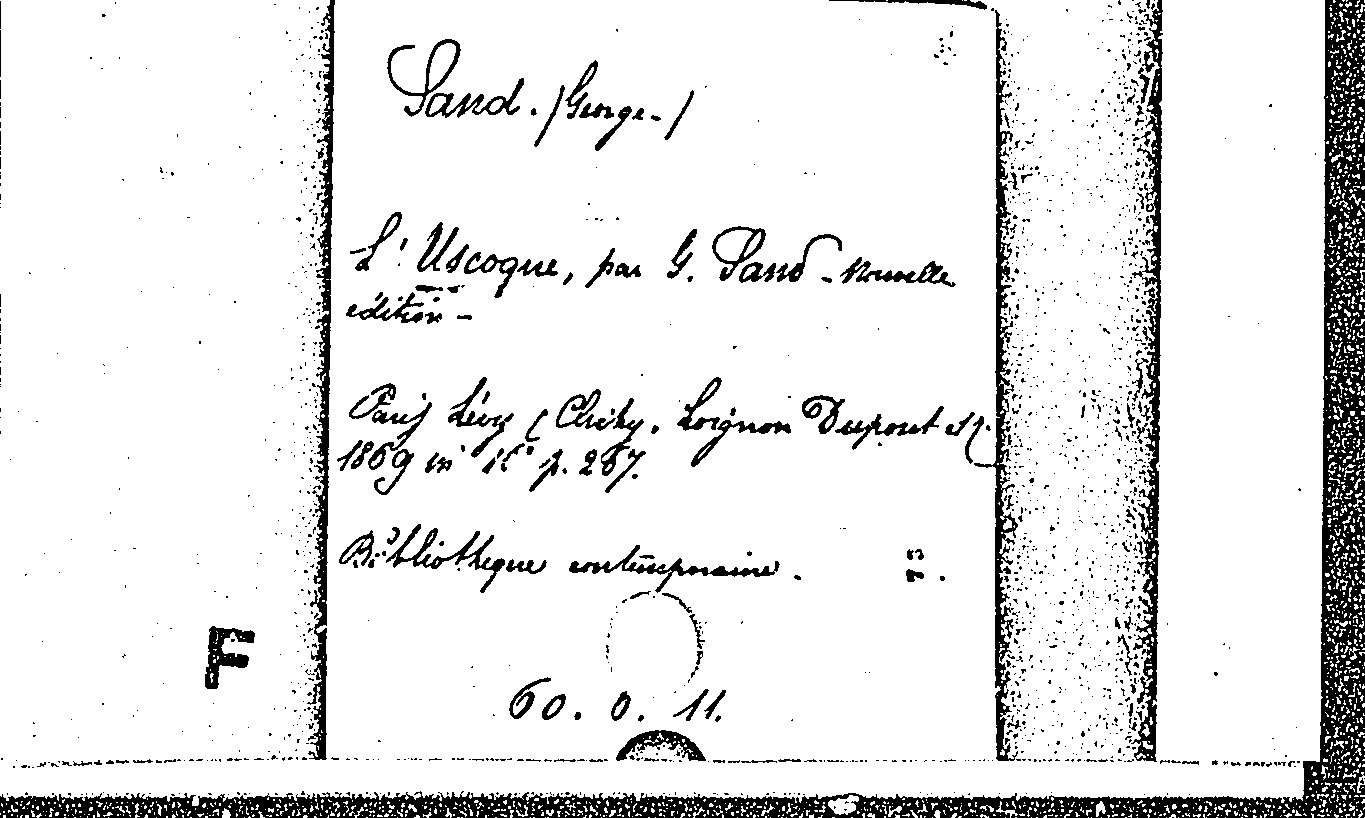 Sand. (George-)
L'Uscoque, par G. Sand - Nouvelle
édition -
Paris Lévy (Clichy. Loignon Dupont et C.
1869 in p. 267.
Bibliothèque contemporaine.
F
60. 0. 11.